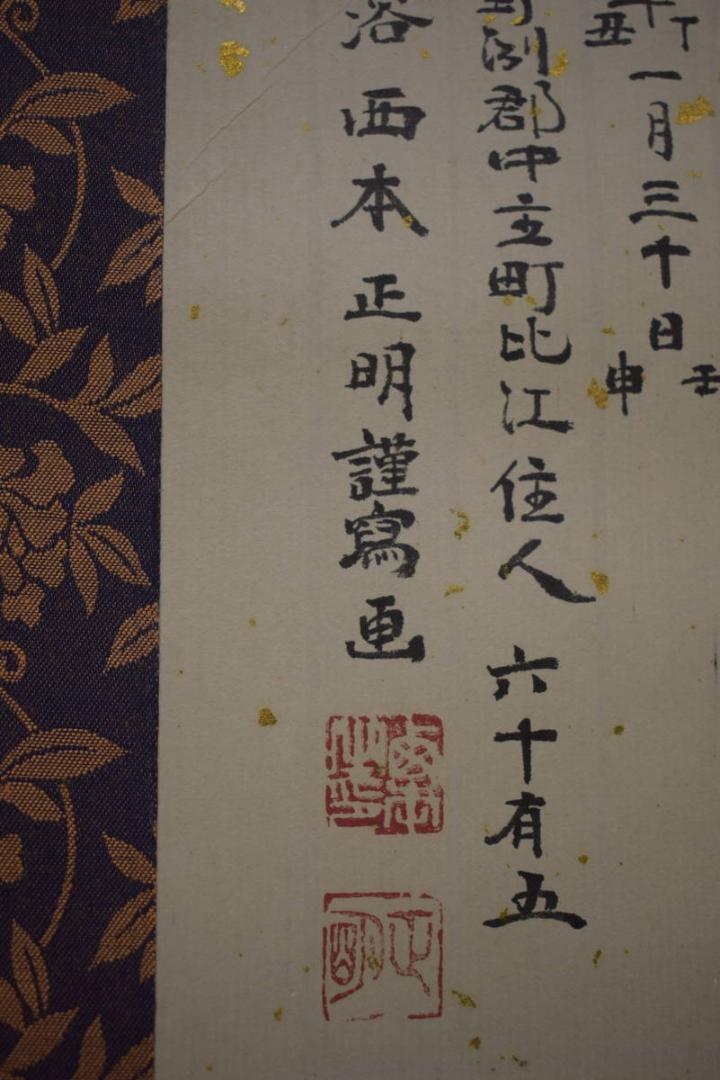 年丁丑一月三十日壬申
野洲郡中主町比江住人 六十有五
西本正明謹寫画
正明